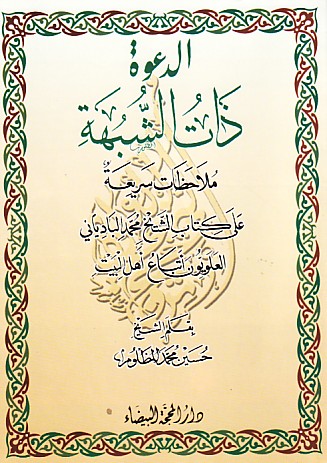 الدعوة
ذَاتُ الشُّبُهَةِ
مُلَاحَظَات سَرِيعَةٌ
عَلَى كِتَابِ الشَّيْخِ مُحَمَّد البَاديَاني
العَلَويّون أتبَاعُ أهْل البَيْت
بقَلَم الشَيْخ
حُسَيْن مُحَمَّد المَظلوم
دَار المحجّة البيضَاء